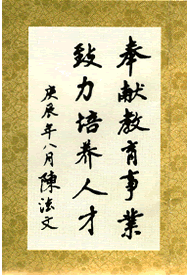 奉献教育事業
致力培养人才
庚辰年八月陳法文